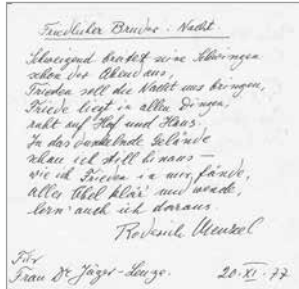 Friedlicher Bruder: Nacht.
Schweigend breitet seine Schwingen
schon der Abend aus,
Frieden soll die Nacht uns bringen,
Friede liegt in allen Dingen,
ruht auf Hof und Haus.
In das dunkelnde Gelände
schau ich still hinaus —
wie ich Frieden in mir fände,
alles Übel klär' und wende,
lern' auch ich daraus.
Roderich Menzel
Für
Frau Dr. Jäger-
20.XI.77